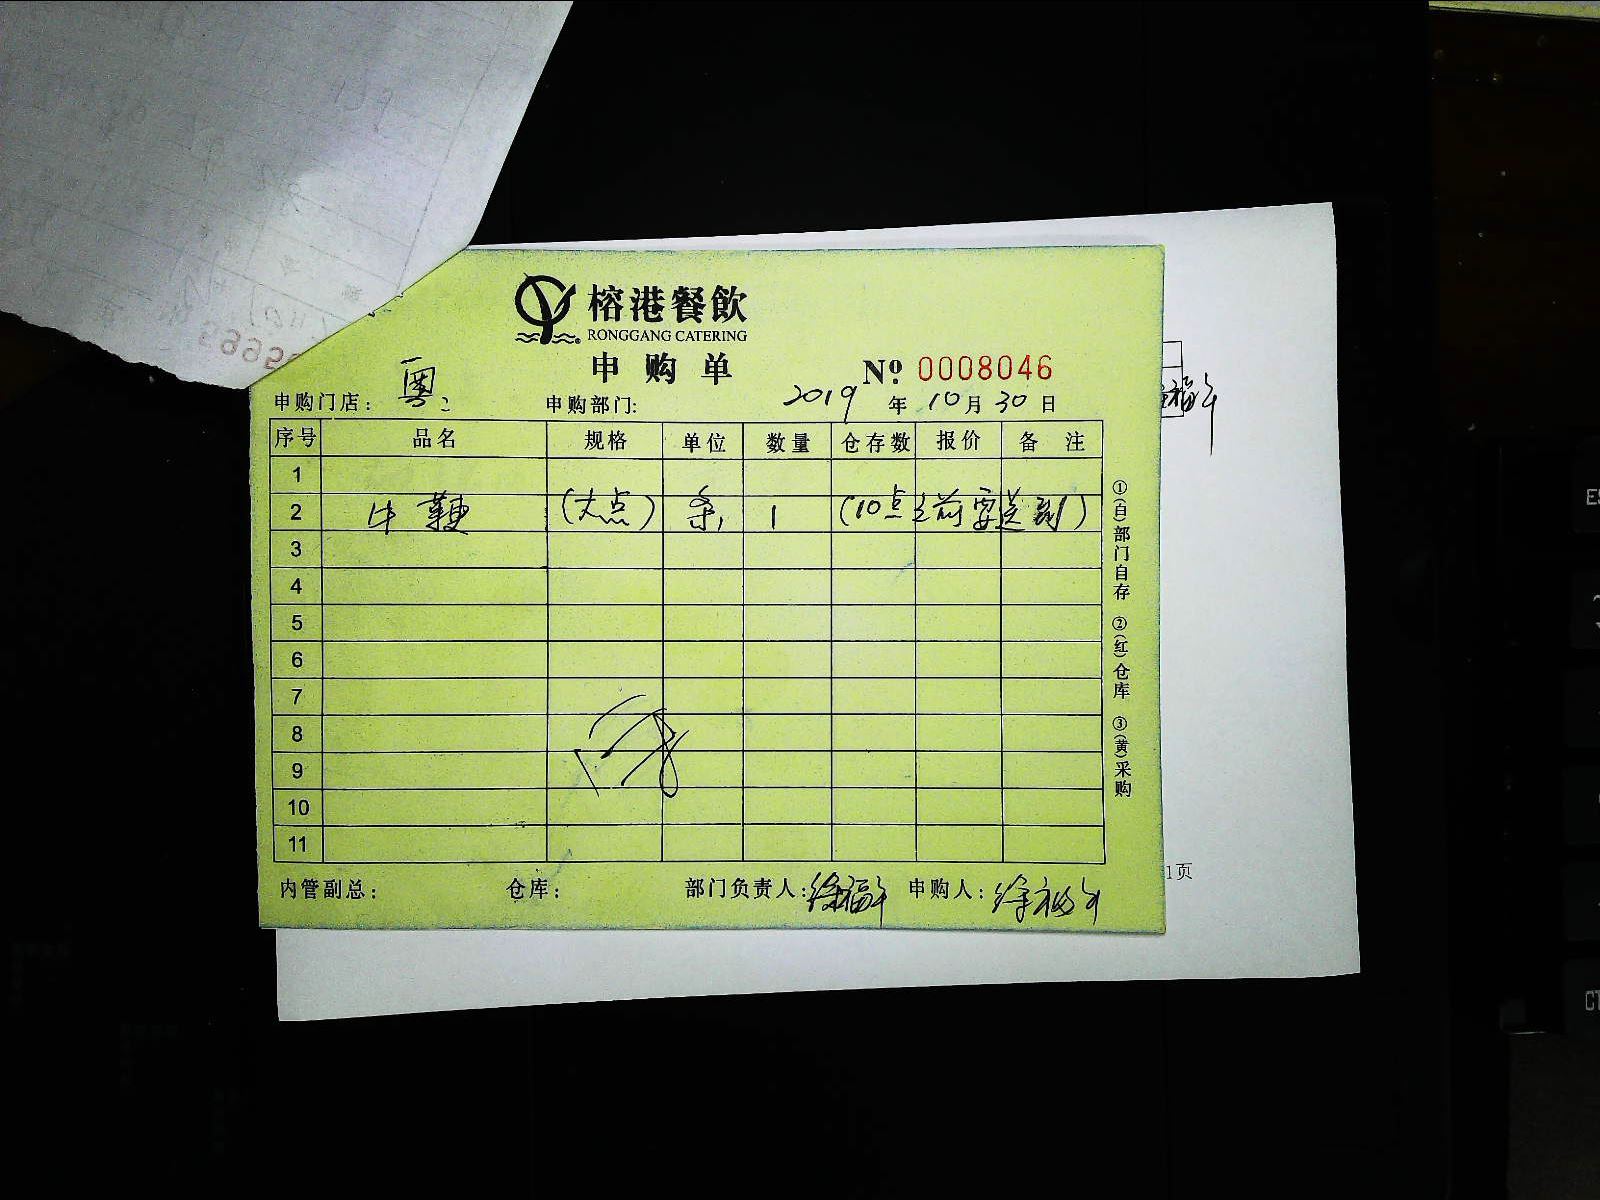 榕港餐飲
RONGGANG CATERING
申购单 №. 0008046
申购门店: 粤2 申购部门: 2019年10月30日
序号 品名 规格 单位 数量 仓存数 报价 备注
1
2 牛鞭 (大点) 条 1 (10点之前要送到)
3
4
5
6
7
8
9
10
11
内管副总: 仓库: 部门负责人:徐福午 申购人:徐福午
①(白)部门自存 ②(红)仓库 ③(黄)采购
1页